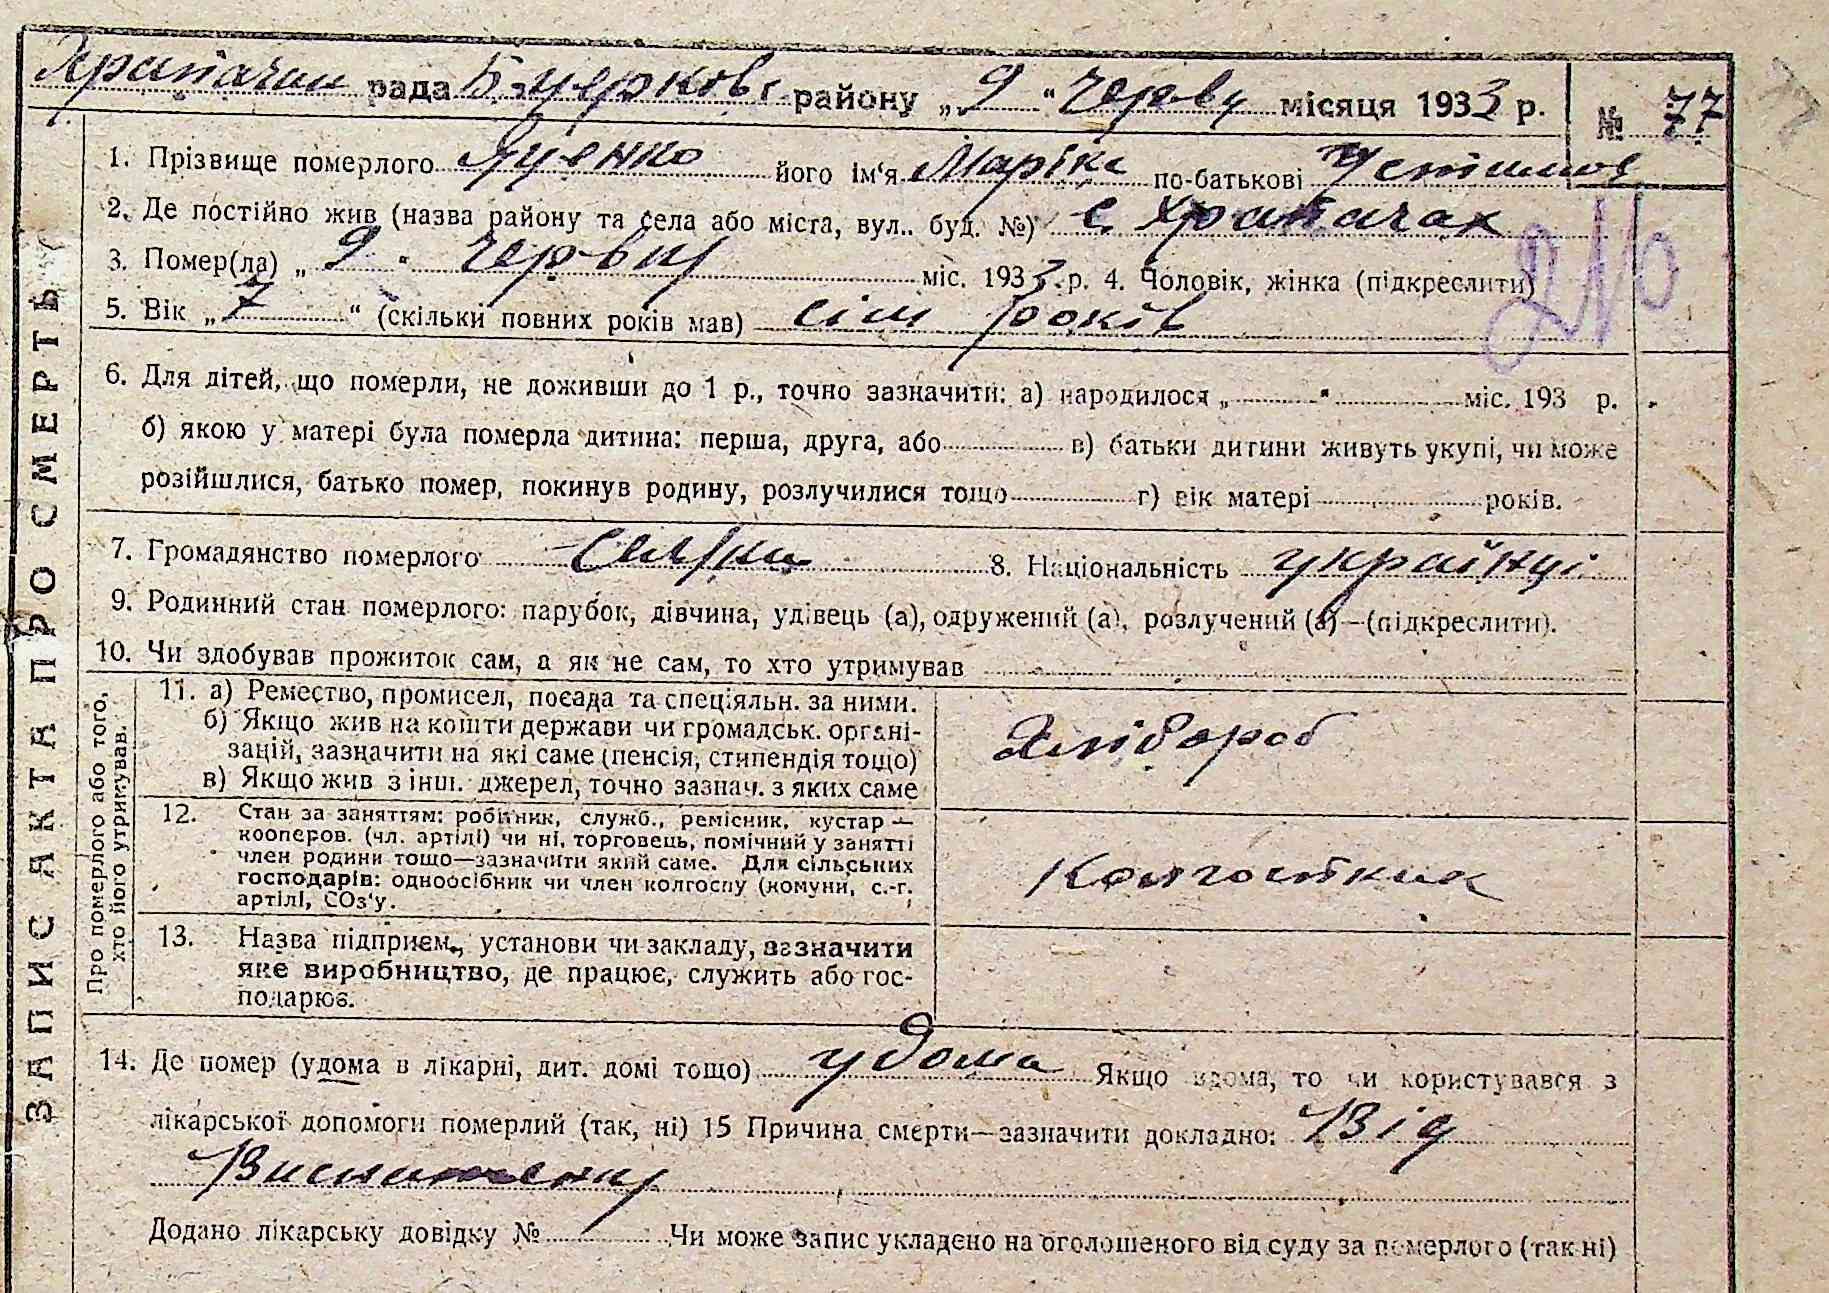 рада Б-церковс. району „ 9 “ червня місяця 1933 р. № 77
1. Прізвище померлого Яценко його ім‘я Маріка по-батькові
2. Де постійно жив (назва району та села або міста, вул.. буд. №) с. Храпачах
3. Помер(ла) „ 9 “ червня міс. 1933 р. 4. Чоловік, жінка (підкреслити)
5. Вік „ 7 “ (скільки повних років мав) сім років
6. Для дітей, що померли, не доживши до 1 р., точно зазначити: а) народилося „ “ міс. 193 р.
б) якою у матері була померла дитина: перша, друга, або в) батьки дитини живуть укупі, чи може
розійшлися, батько помер, покинув родину, розлучилися тощо г) вік матері років.
7. Громадянство померлого 8. Національність
9. Родинний стан померлого: парубок, дівчина, удівець (а), одружений (а), розлучений (а)—(підкреслити).
10. Чи здобував прожиток сам, а як не сам, то хто утримував
11. а) Ремество, промисел, посада та спеціяльн. за ними.
б) Якщо жив на кошти держави чи громадськ. органі-
зацій, зазначити на які саме (пенсія, стипендія тощо)
в) Якщо жив з інш. джерел, точно зазнач. з яких саме
Хлібороб
12. Стан за заняттям: робітник, служб., ремісник, кустар —
кооперов. (чл. артілі) чи ні, торговець, помічний у занятті
член родини тощо—зазначити який саме. Для сільських
господарів: одноосібник чи член колгоспу (комуни, с.-г.
артілі, СОз‘у.
Колгоспник
13. Назва підприєм., установи чи закладу, зазначити
яке виробництво, де працює, служить або гос-
подарює.
14. Де помер (удома в лікарні, дит. домі тощо) удома Якщо вдома, то чи користувався з
лікарської допомоги померлий (так, ні) 15 Причина смерти—зазначити докладно: Від
Виснаження
Додано лікарську довідку № Чи може запис укладено на оголошеного від суду за померлого (так ні)
ЗАПИС АКТА ПРО СМЕРТЬ
Про померлого або того,
хто його утримував.